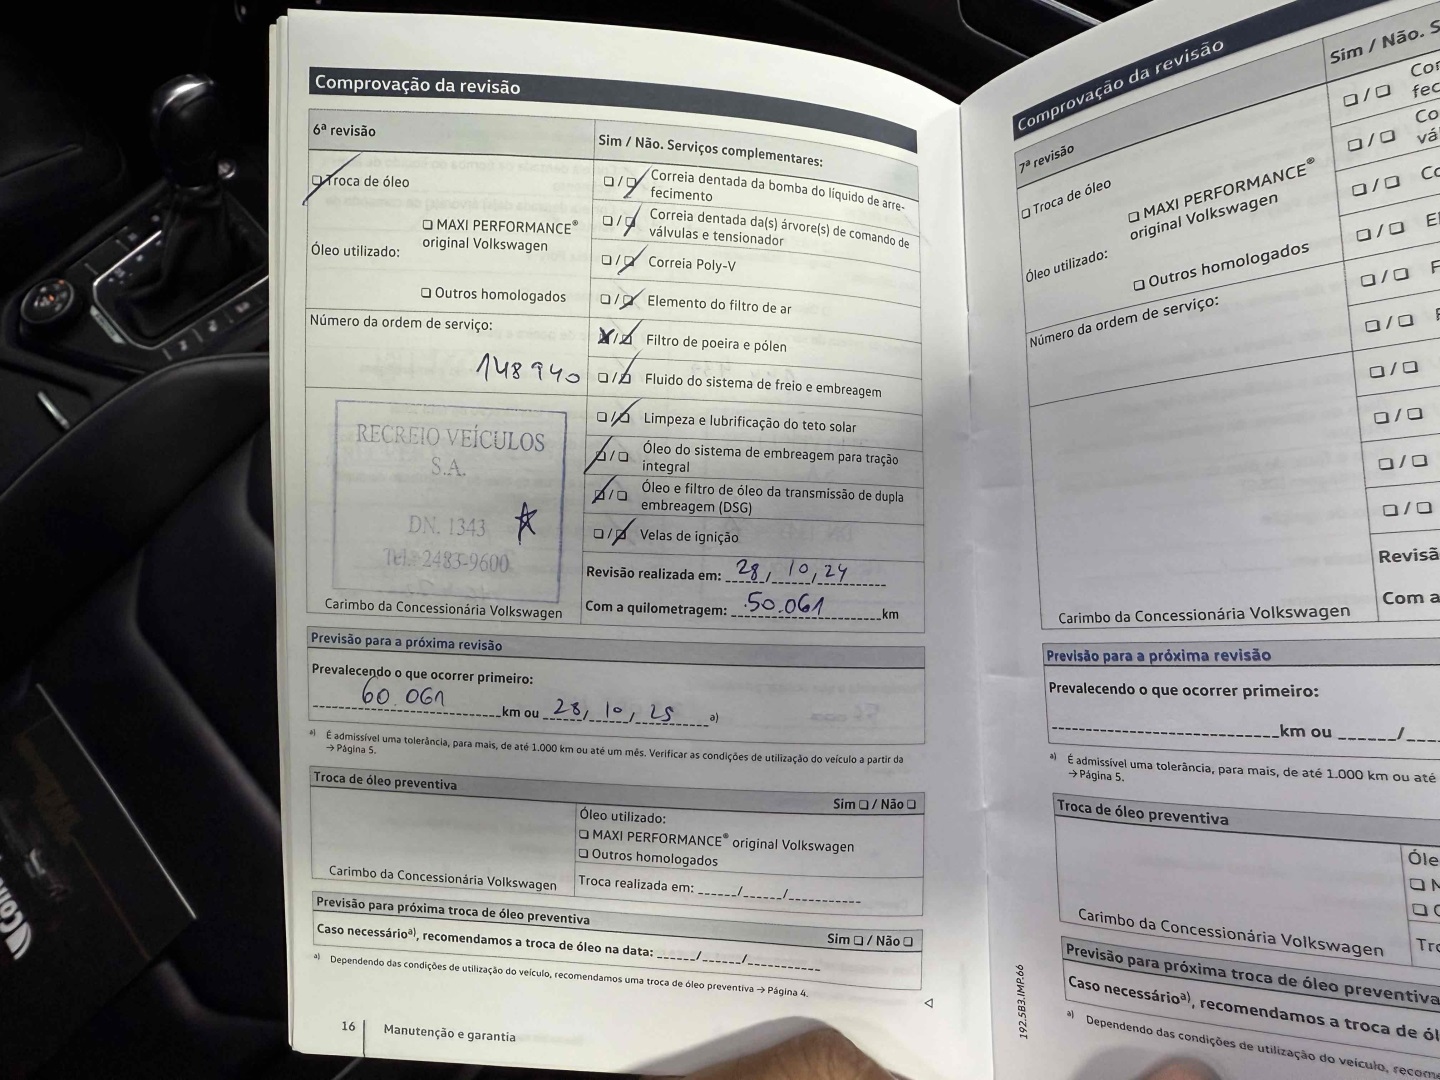 Comprovação da revisão
6ª revisão
Troca de óleo
MAXI PERFORMANCE®
original Volkswagen
Óleo utilizado:
Outros homologados
Número da ordem de serviço:
148940
RECREIO VEÍCULOS
S.A.
DN. 1343
Tel.: 2483-9600
Carimbo da Concessionária Volkswagen
Sim / Não. Serviços complementares:
Correia dentada da bomba do líquido de arre-
fecimento
Correia dentada da(s) árvore(s) de comando de
válvulas e tensionador
Correia Poly-V
Elemento do filtro de ar
Filtro de poeira e pólen
Fluido do sistema de freio e embreagem
Limpeza e lubrificação do teto solar
Óleo do sistema de embreagem para tração
integral
Óleo e filtro de óleo da transmissão de dupla
embreagem (DSG)
Velas de ignição
Revisão realizada em: 28/10/24
Com a quilometragem: 50.061 km
Previsão para a próxima revisão
Prevalecendo o que ocorrer primeiro:
60.061 km ou 28/10/25 a)
a) É admissível uma tolerância, para mais, de até 1.000 km ou até um mês. Verificar as condições de utilização do veículo a partir da
→ Página 5.
Troca de óleo preventiva Sim / Não
Óleo utilizado:
MAXI PERFORMANCE® original Volkswagen
Outros homologados
Carimbo da Concessionária Volkswagen
Troca realizada em: ______/______/___________
Previsão para próxima troca de óleo preventiva Sim / Não
Caso necessário a), recomendamos a troca de óleo na data: ______/______/___________
a) Dependendo das condições de utilização do veículo, recomendamos uma troca de óleo preventiva → Página 4.
16 Manutenção e garantia
Comprovação da revisão
7ª revisão
Troca de óleo
MAXI PERFORMANCE®
original Volkswagen
Óleo utilizado:
Outros homologados
Número da ordem de serviço:
Carimbo da Concessionária Volkswagen
Sim / Não. S
Cor
fec
Co
vál
Co
El
F
Revisã
Com a
Previsão para a próxima revisão
Prevalecendo o que ocorrer primeiro:
km ou ______/
a) É admissível uma tolerância, para mais, de até 1.000 km ou até
→ Página 5.
Troca de óleo preventiva
Óle
Carimbo da Concessionária Volkswagen
Tro
Previsão para próxima troca de óleo preventiva
Caso necessário a), recomendamos a troca de ól
a) Dependendo das condições de utilização do veículo, recome
192.5B3.IMP.66